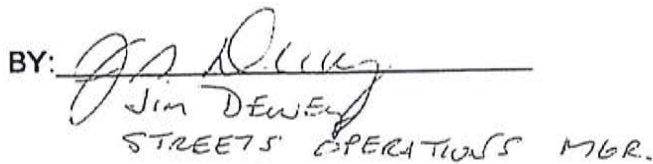 BY:
JIM DEWEY
STREETS OPERATIONS MGR.